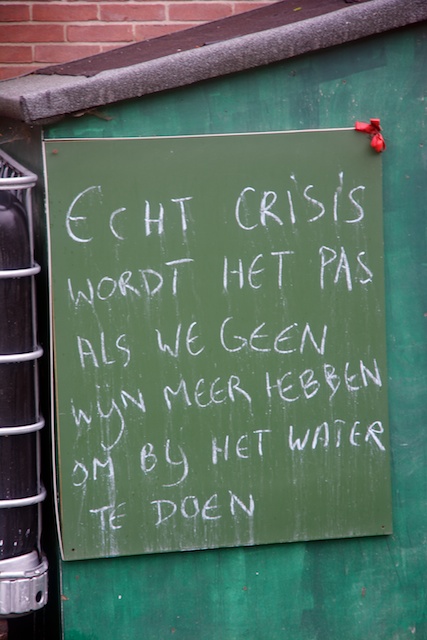 ECHT CRISIS
WORDT HET PAS
ALS WE GEEN
WIJN MEER HEBBEN
OM BIJ HET WATER
TE DOEN